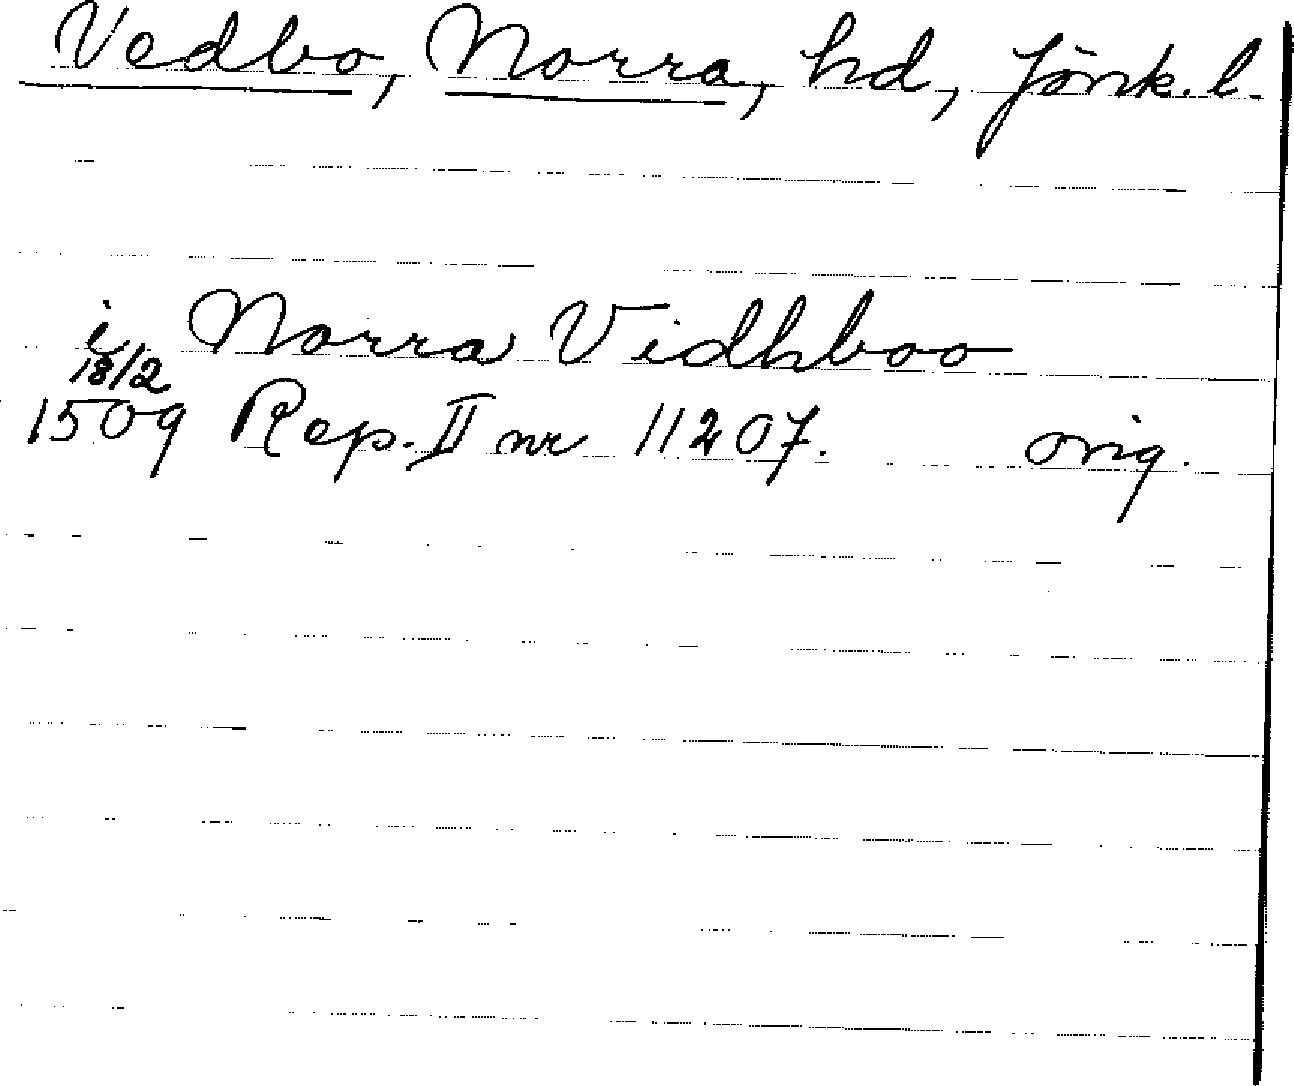 Vedbo, Norra, hd, Jönk. l.
i Norra Vidhboo
18/2
1509 Rep. II nr 11207. orig.